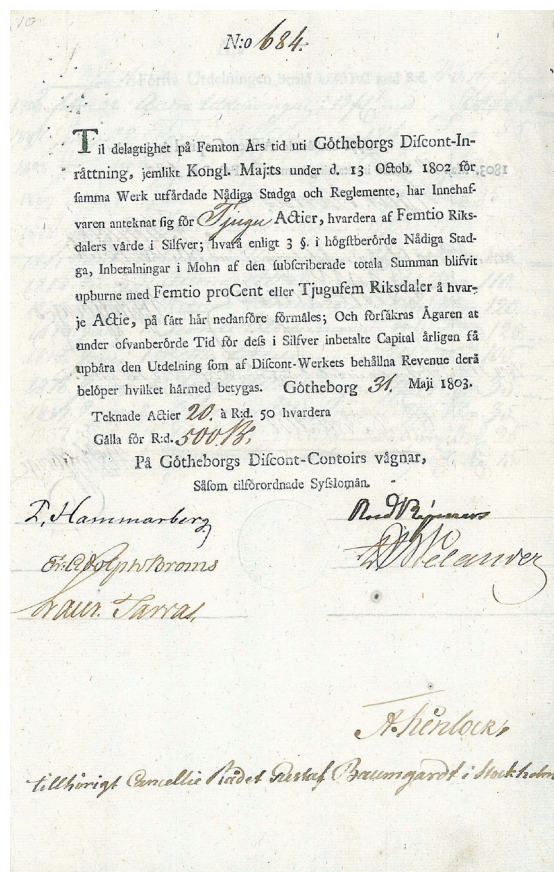 10
N:o 684.
Til delagtighet på Femton Års tid uti Götheborgs Discont-In-
råttning, jemlikt Kongl. Maj:ts under d. 13 Octob. 1802 för
samma Werk utfärdade Nådiga Stadga och Reglemente, har Innehaf-
varen anteknat sig för Tjugu Actier, hvardera af Femtio Riks-
dalers vårde i Silfver; hvarå enligt 3 §. i högstberörde Nådiga Stad-
ga, Inbetalningar i Mohn af den subscriberade totala Summan blifvit
upburne med Femtio proCent eller Tjugufem Riksdaler å hvar-
je Actie, på sätt här nedanföre förmåles; Och försäkras Ägaren at
under ofvanberörde Tid för dess i Silfver inbetalte Capital årligen få
upbåra den Utdelning som af Discont-Werkets behållna Revenue derå
belöper hvilket hårmed betygas. Götheborg 31. Maji 1803.
Teknade Actier 20. à R:d. 50 hvardera
Gälla för R:d. 500 B:
På Götheborgs Discont-Contoirs vågnar,
Såsom tilförordnade Sysslomän.
P. Hammarberg
Broms
Laur. Tarras
Welander
tillhörigt Cancellie Rådet Gustaf Baumgardt i Stockholm